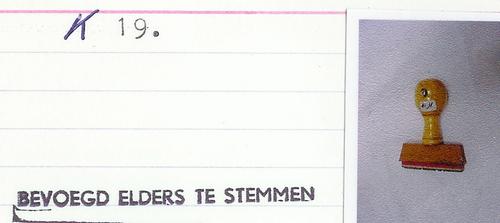 K 19.
BEVOEGD ELDERS TE STEMMEN